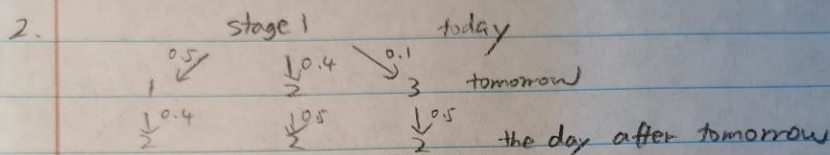 2. stage 1 today
0.5 0.4 0.1
1 2 3 tomorrow
0.4 0.5 0.5
2 2 2 the day after tomorrow